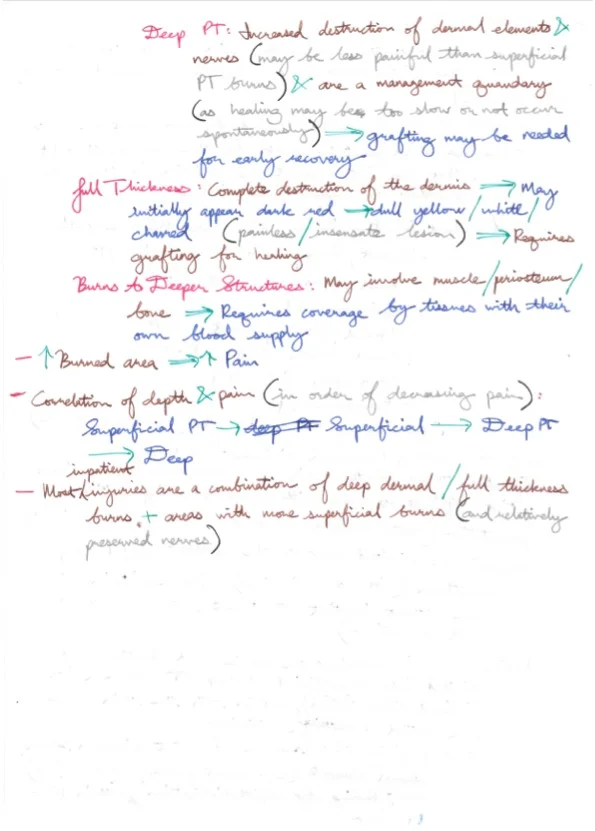 Deep PT: Increased destruction of dermal elements &
nerves (may be less painful than superficial
PT burns) & are a management quandary
(as healing may be too slow or not occur
spontaneously) → grafting may be needed
for early recovery
Full Thickness: Complete destruction of the dermis → May
initially appear dark red → dull yellow/white/
charred (painless/insensate lesion) → Requires
grafting for healing
Burns to Deeper Structures: May involve muscle/periosteum/
bone → Requires coverage by tissues with their
own blood supply
- ↑ Burned area → ↑ Pain
- Correlation of depth & pain (in order of decreasing pain):
Superficial PT → deep PT Superficial → Deep PT
→ Deep
- Most inpatient injuries are a combination of deep dermal/full thickness
burns + areas with more superficial burns (and relatively
preserved nerves)